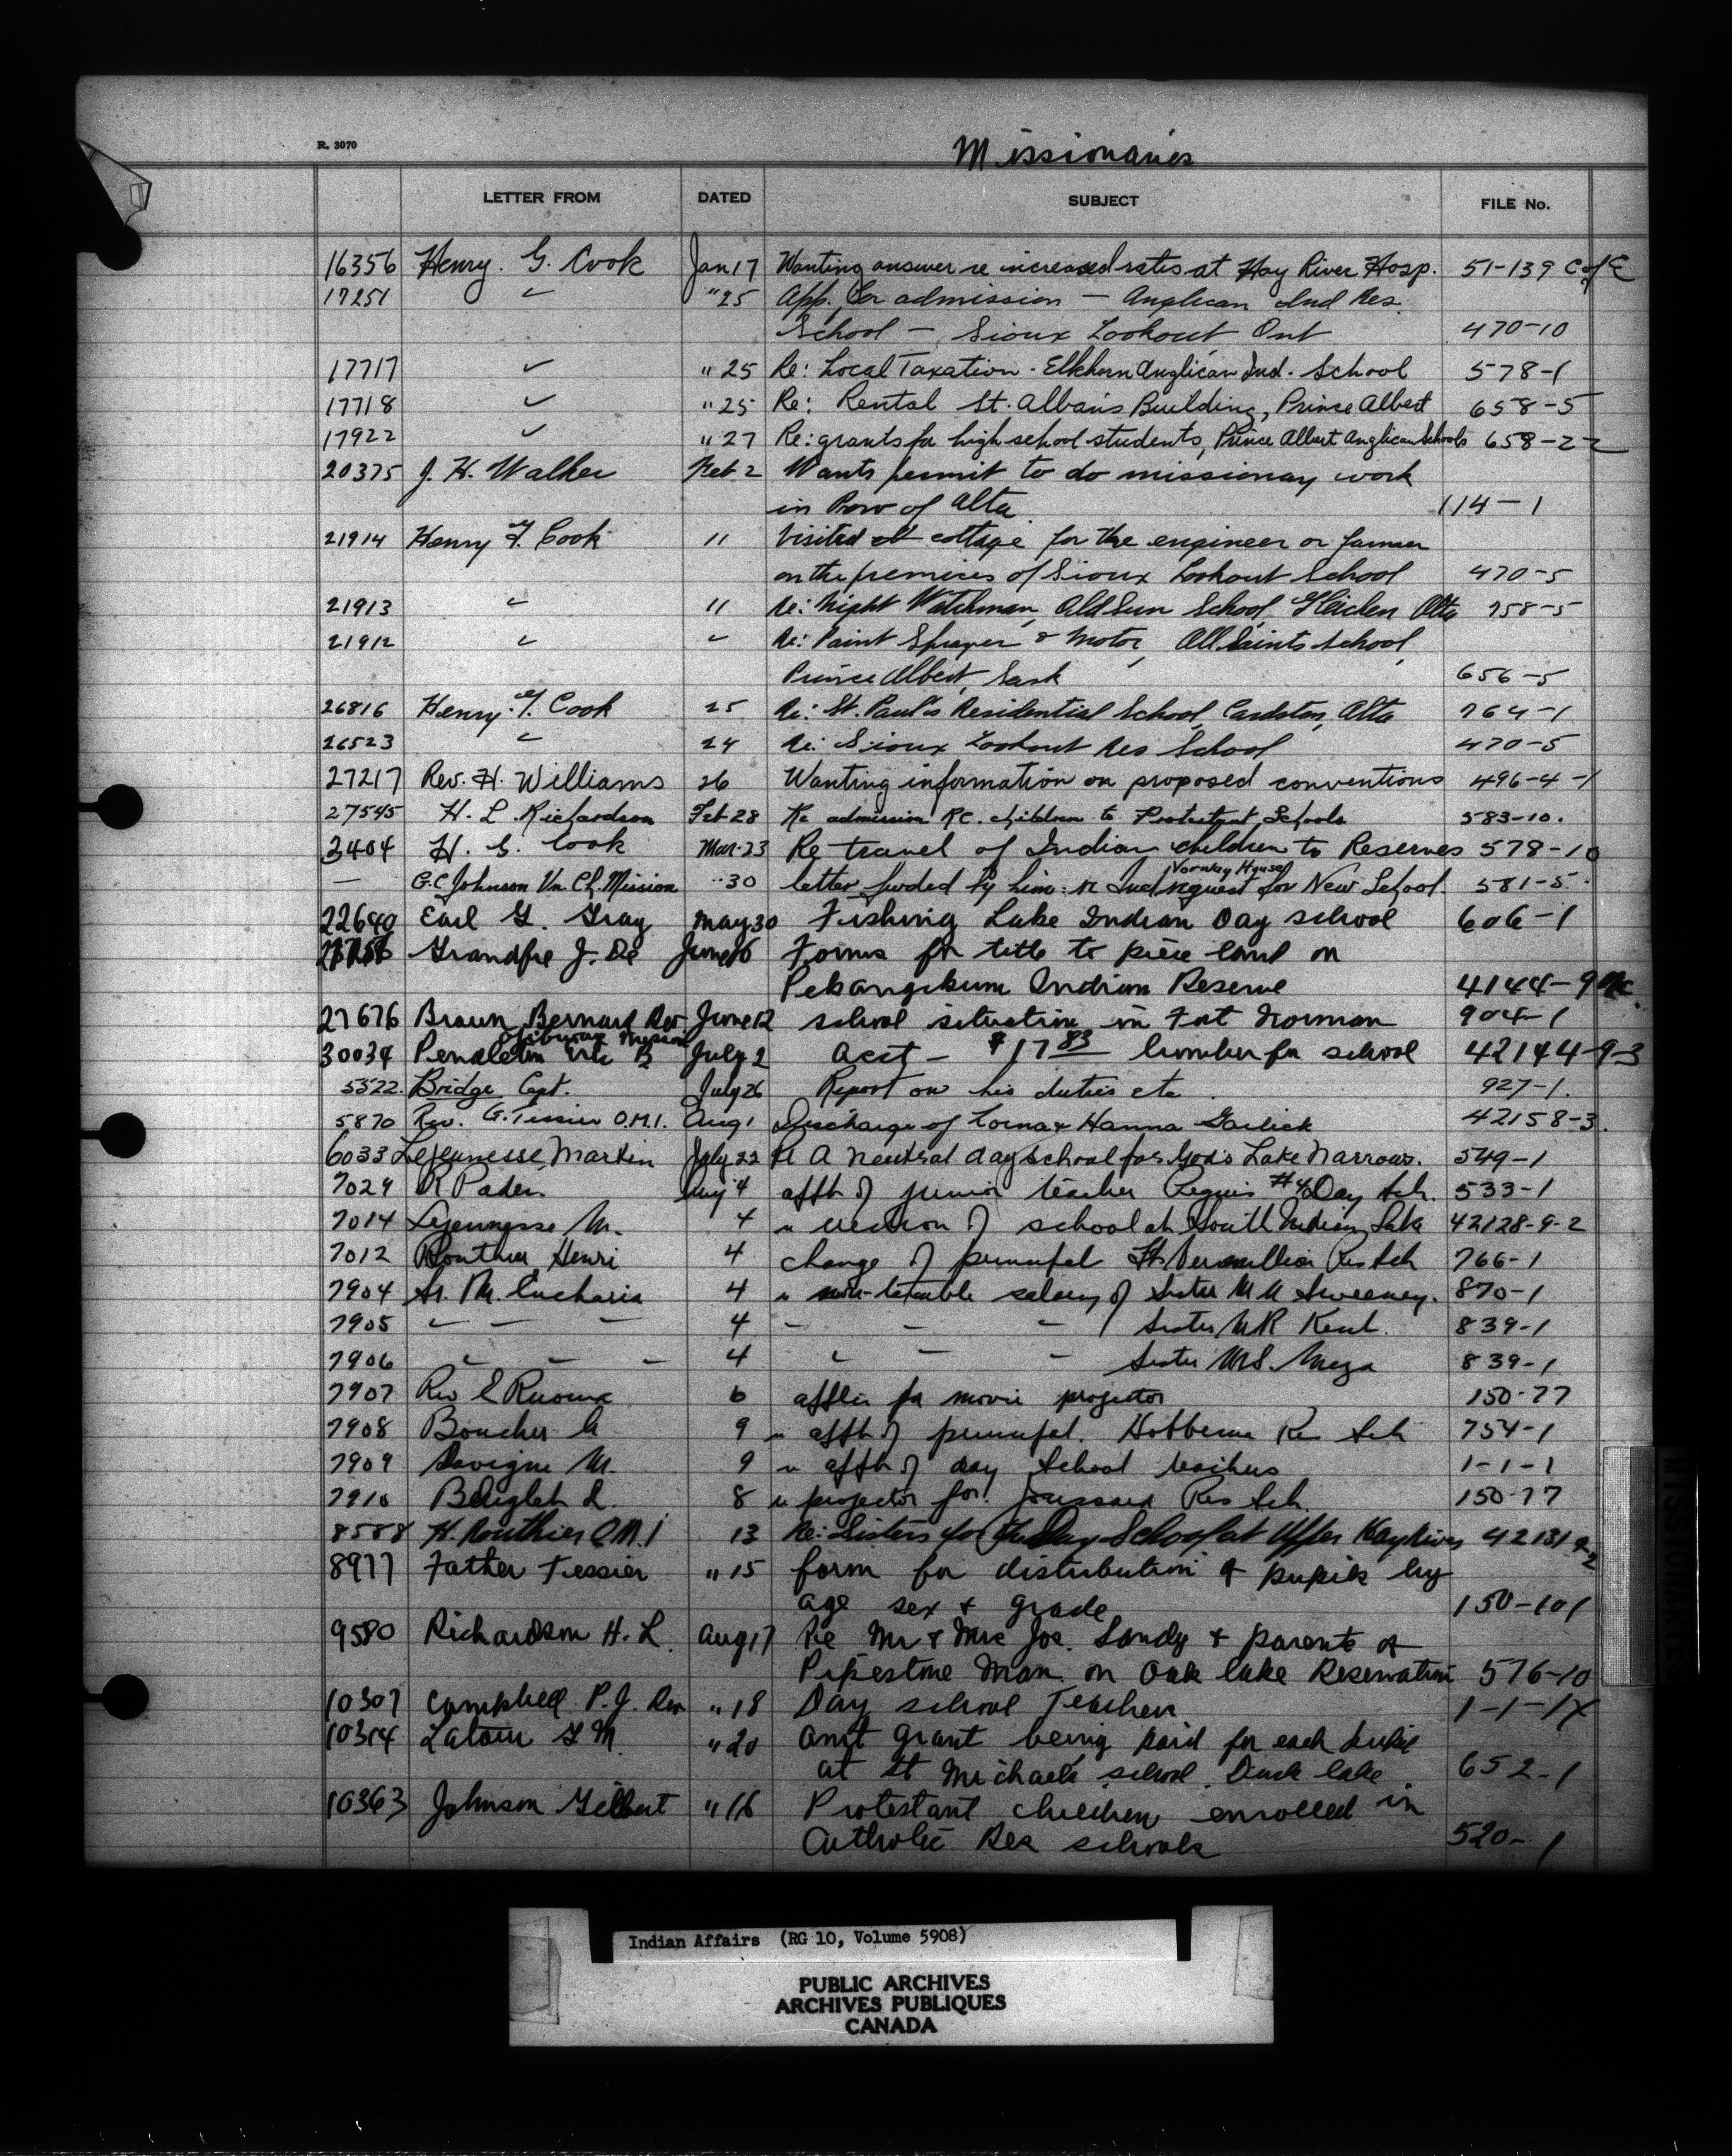 R. 3070
Missionaries
LETTER FROM DATED SUBJECT FILE No.
16356 Henry. G. Cook Jan 17 Wanting answer re increased rates at Hay River Hosp. 51-139 C of E
17251 " " 25 App. for admission — Anglican Ind Res.
School — Sioux Lookout Ont 470-10
17717 " " 25 Re: Local Taxation - Elkhorn Anglican Ind. School 578-1
17718 " " 25 Re: Rental St. Alban's Building, Prince Albert 658-5
17922 " " 27 Re: grants for high school students, Prince Albert Anglican Schools 658-22
20375 J. H. Walker Feb 2 Wants permit to do missionary work
in Prov of Alta. 114-1
21914 Henry G. Cook 11 Visited cottage for the engineer or farmer
on the premises of Sioux Lookout School 470-5
21913 " 11 Re: Night Watchman, Old Sun School, Gleichen Alta 758-5
21912 " " Re: Paint Sprayer & Motor, All Saints School,
Prince Albert, Sask 656-5
26816 Henry. G. Cook 25 Re: St. Paul's Residential School, Cardston, Alta 764-1
26523 " 24 Re: Sioux Lookout Res School 470-5
27217 Rev. H. Williams 26 Wanting information on proposed conventions 496-4-1
27545 H. L. Richardson Feb 28 Re admission R.C. children to Protestant Schools 583-10.
3404 H. G. Cook Mar. 23 Re travel of Indian children to Reserves 578-10
Norway House
— G.C. Johnson Un. Ch. Mission " 30 letter fwded by him re Ind request for New School. 581-5.
22640 Earl G. Gray May 30 Fishing Lake Indian Day school 606-1
Grandpre J. De June 6 Forms for title to piece land on
Pekangikum Indian Reserve 4144-9
27676 Braun, Bernard Rev. June 12 school situation in Fort Norman 904-1
Ojibway Mission
30034 Pendleton July 2 acct — $17 83 lumber for school 42144-9-3
5522. Bridge Capt. July 26 Report on his duties etc. 927-1.
5870 Rev. G. Tessier O.M.I. Aug 1 Discharge of Lorna & Hanna Garlick 42158-3.
6033 Lejeunesse, Martin July 22 Re A neutral day school for God's Lake Narrows. 549-1
7029 R Pader. Aug 4 appt of junior teacher Peguis #4 Day Sch. 533-1
7014 Lajeunesse, M. 4 re erection of school at South Indian Lake 42128-9-2
7012 Routhier, Henri 4 change of principal Ft. Vermillion Res Sch 766-1
7904 Sr. M. Eucharia 4 re non-taxable salary of Sister M A Sweeney. 870-1
7905 " — — 4 — — — Sister M R Kent. 839-1
7906 " — — 4 " — — Sister M S. 839-1
7907 Rev E 6 applin for movie projector 150-77
7908 Boucher G 9 re appt of principal. Hobbema Res Sch 754-1
7909 Lavigne M. 9 re appt of day school teachers 1-1-1
7910 8 re projector for Joussard Res Sch. 150-77
8588 H. Routhier O.M.I 13 Re: Sisters for the Day School at Upper Hay River 42131-9-2
8977 Father Tessier " 15 form for distribution of pupils by
age sex & grade 150-101
9580 Richardson H. L. Aug 17 Re Mr & Mrs Joe. Sandy & parents of
Pipestone Man. on Oak Lake Reservation 576-10
10307 Campbell P. J. Rev " 18 Day school Teachers 1-1-1X
10314 Latour G M. " 20 amt grant being paid for each pupil
at St Michael's school. Duck Lake. 652-1
10363 Johnson Gilbert " 16 Protestant children enrolled in
Catholic Res schools 520-1
MISSIONARIE
Indian Affairs (RG 10, Volume 5908)
PUBLIC ARCHIVES
ARCHIVES PUBLIQUES
CANADA